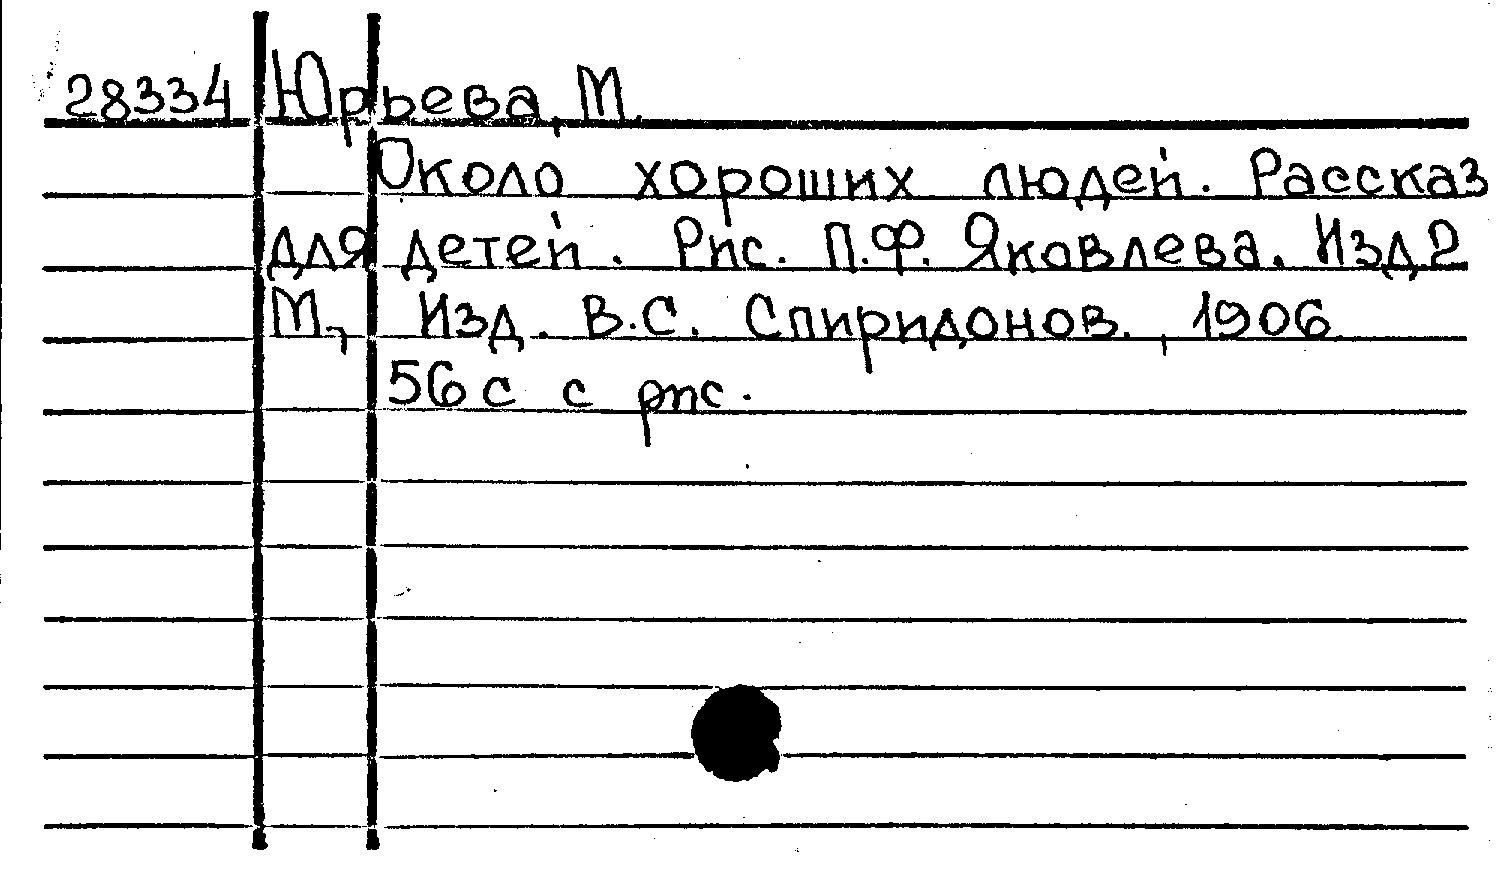 28334 Юрьева, М.
Около хороших людей. Рассказ
для детей. Рис. П.Ф. Яковлева. Изд 2
М., Изд. В.С. Спиридонов., 1906
56 с с рис.